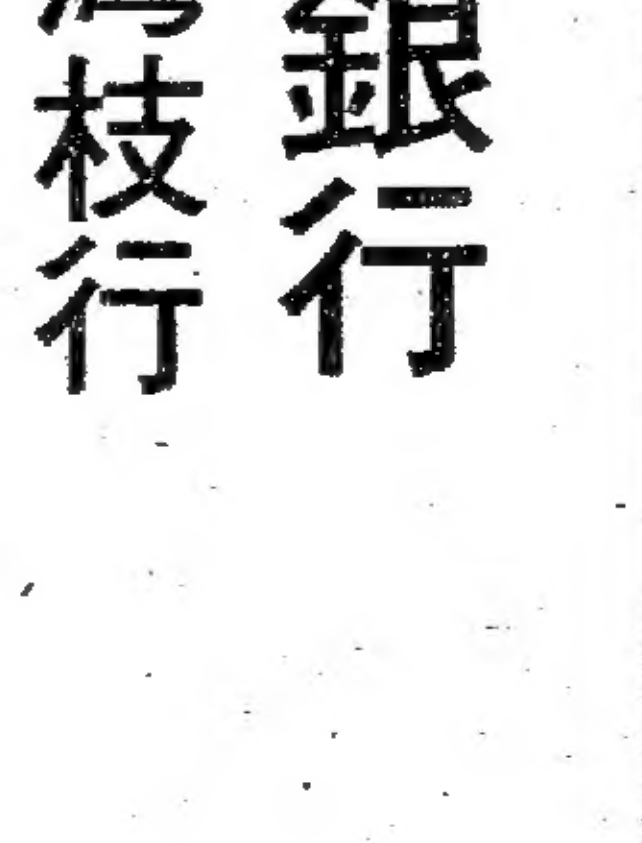 銀行
枝行